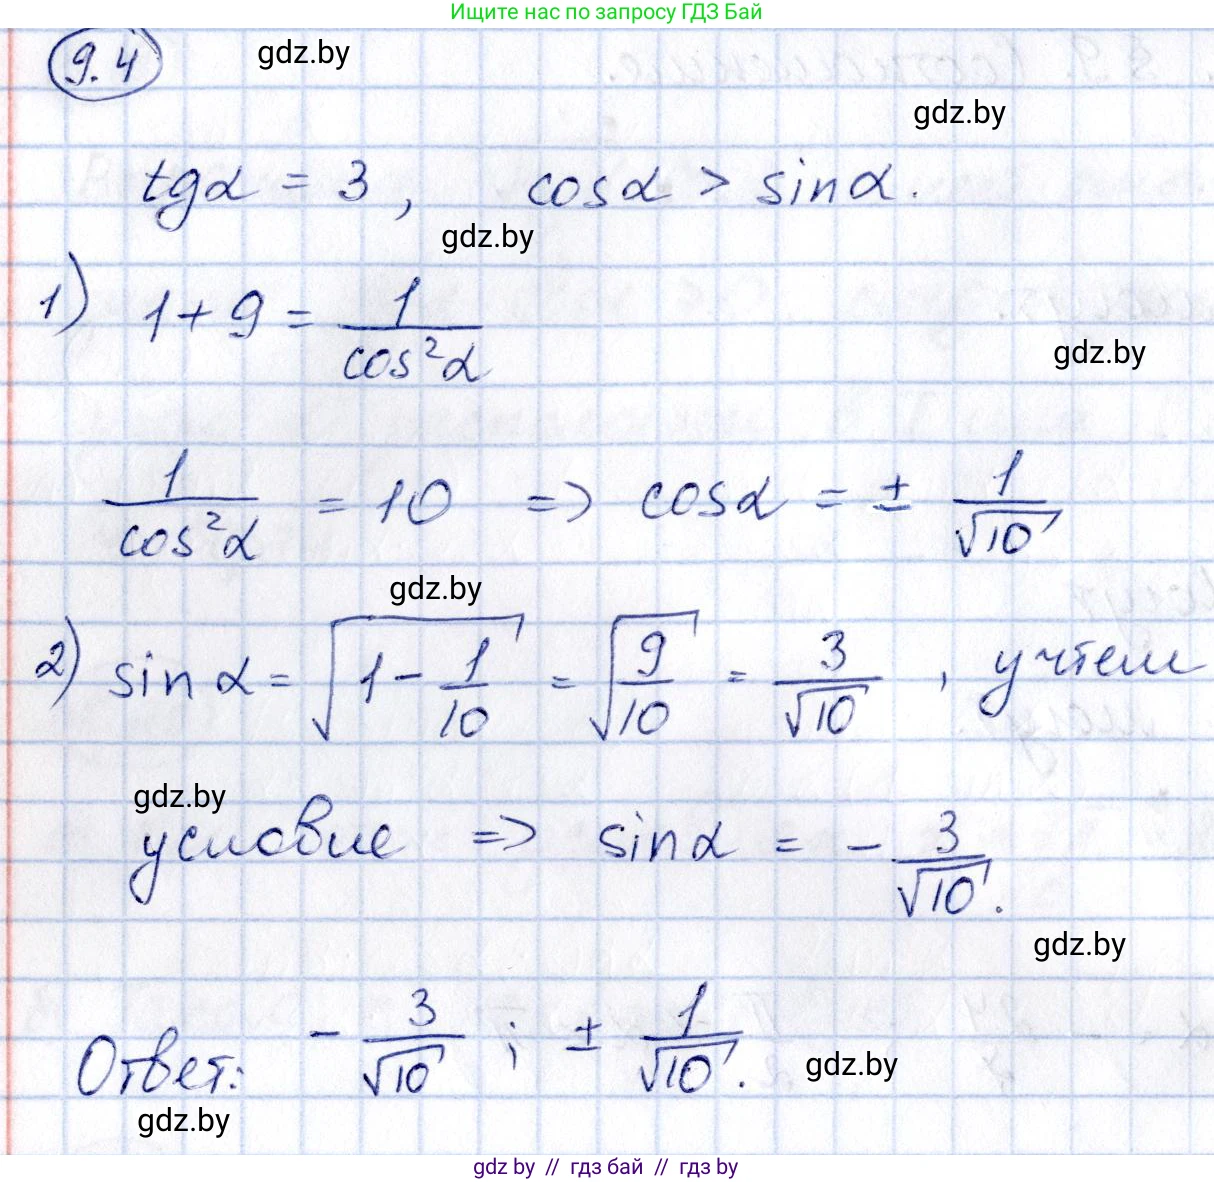 Ищите нас по запросу ГДЗ Бай
9.4
gdz.by
gdz.by
tgα = 3, cosα > sinα.
gdz.by
1) 1+9 = 1/cos²α
gdz.by
1/cos²α = 10 => cosα = ± 1/√10
gdz.by
2) sin α = √(1 - 1/10) = √(9/10) = 3/√10, учтем
gdz.by
условие => sinα = - 3/√10.
gdz.by
Ответ: - 3/√10; ± 1/√10.
gdz.by
gdz.by
gdz by // гдз бай // гдз by